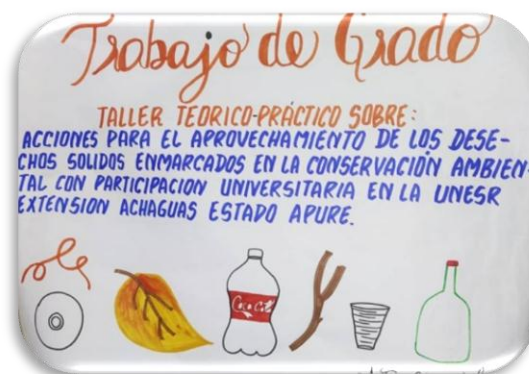 Trabajo de Grado
TALLER TEORICO-PRÁCTICO SOBRE:
ACCIONES PARA EL APROVECHAMIENTO DE LOS DESE-
CHOS SOLIDOS ENMARCADOS EN LA CONSERVACIÓN AMBIEN-
TAL CON PARTICIPACION UNIVERSITARIA EN LA UNESR
EXTENSION ACHAGUAS ESTADO APURE.